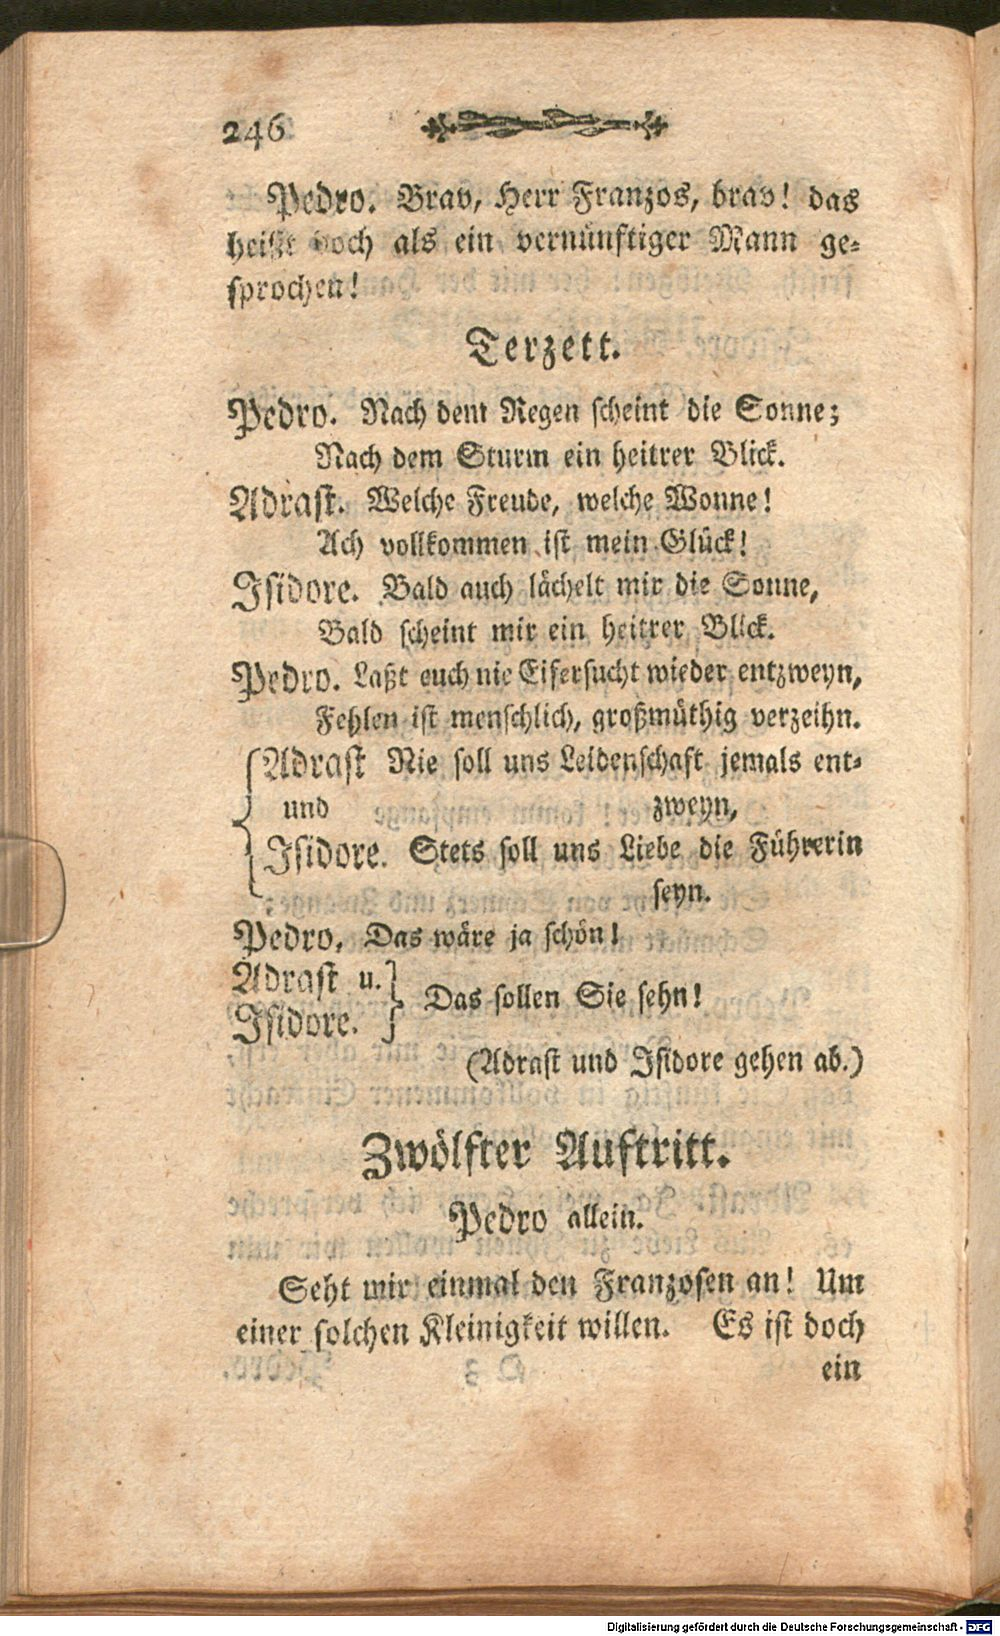 246
Pedro. Brav, Herr Franzos, brav! das
heißt doch als ein vernünftiger Mann ge-
sprochen!
Terzett.
Pedro. Nach dem Regen scheint die Sonne;
Nach dem Sturm ein heitrer Blick.
Adrast. Welche Freude, welche Wonne!
Ach vollkommen ist mein Glück!
Isidore. Bald auch lächelt mir die Sonne,
Bald scheint mir ein heitrer Blick.
Pedro. Laßt euch nie Eifersucht wieder entzweyn,
Fehlen ist menschlich, großmüthig verzeihn.
Adrast Nie soll uns Leidenschaft jemals ent-
und zweyn,
Isidore. Stets soll uns Liebe die Führerin
seyn.
Pedro. Das wäre ja schön!
Adrast u.
Isidore. Das sollen Sie sehn!
(Adrast und Isidore gehen ab.)
Zwölfter Auftritt.
Pedro allein.
Seht mir einmal den Franzosen an! Um
einer solchen Kleinigkeit willen. Es ist doch
ein
Digitalisierung gefördert durch die Deutsche Forschungsgemeinschaft - DFG